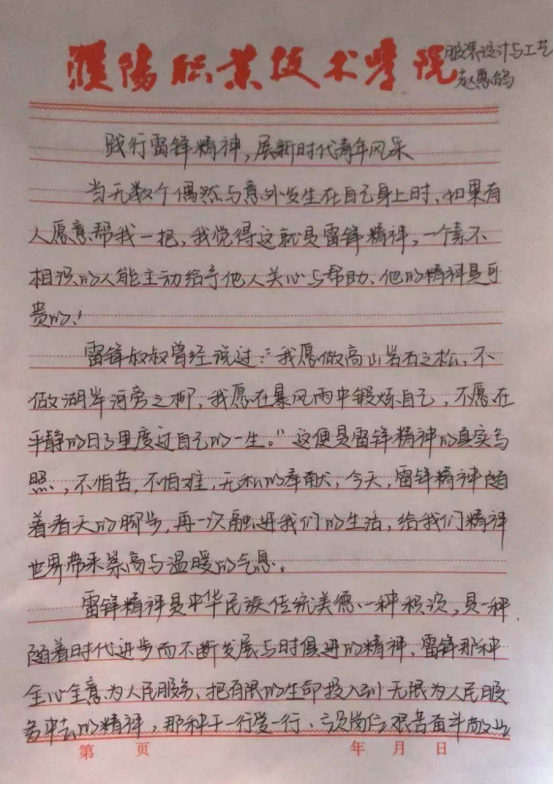 濮阳职业技术学院
服装设计与工艺
赵惠鸽
践行雷锋精神，展新时代青年风采
当无数个偶然与意外发生在自己身上时，如果有
人愿意帮我一把，我觉得这就是雷锋精神，一个素不
相识的人能主动给予他人关心与帮助、他的精神是可
贵的！
雷锋叔叔曾经说过：“我愿做高山岩石之松，不
做湖岸河旁之柳，我愿在暴风雨中锻炼自己，不愿在
平静的日子里度过自己的一生。”这便是雷锋精神的真实写
照，不怕苦，不怕难，无私的奉献，今天，雷锋精神随
着春天的脚步，再一次融进我们的生活，给我们精神
世界带来崇高与温暖的气息。
雷锋精神是中华民族传统美德一种积淀，是一种
随着时代进步而不断发展与时俱进的精神、雷锋那种
全心全意为人民服务、把有限的生命投入到无限为人民服
务中去的精神，那种干一行爱一行、立足岗位艰苦奋斗敬业
第 页 年 月 日